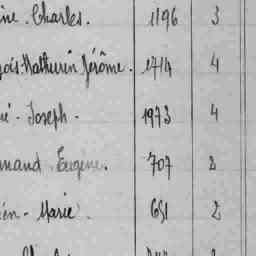 ine. Charles. 1196 3
çois-Mathurin Jérôme. 1714 4
né-Joseph. 1973 4
mand Eugène. 707 2
en-Marie. 651 2